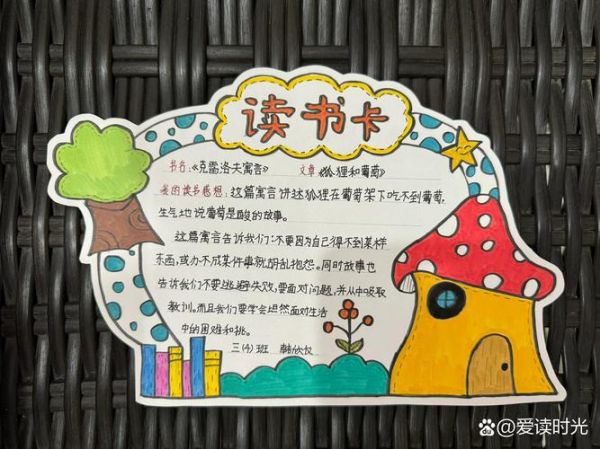 读书卡
书名:《克雷洛夫寓言》 文章《狐狸和葡萄》
我的读书感想:这篇寓言讲述狐狸在葡萄架下吃不到葡萄,
生气地说葡萄是酸的故事。
这篇寓言告诉我们:不要因为自己得不到某样
东西,或办不成某件事就胡乱抱怨。同时故事也
告诉我们不要逃避失败,要面对问题,并从中吸取
教训。而且我们要学会坦然面对生活
中的困难和挑。
三(4)班
@爱读时光